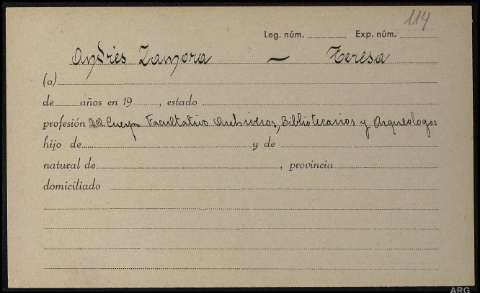 114
Leg. núm. Exp. núm.
Andrés Zamora — Teresa
(a)
de años en 19 , estado
profesión Cuerpo Facultativo Archiveros, Bibliotecarios y Arqueólogos
hijo de y de
natural de , provincia
domiciliado
ARG